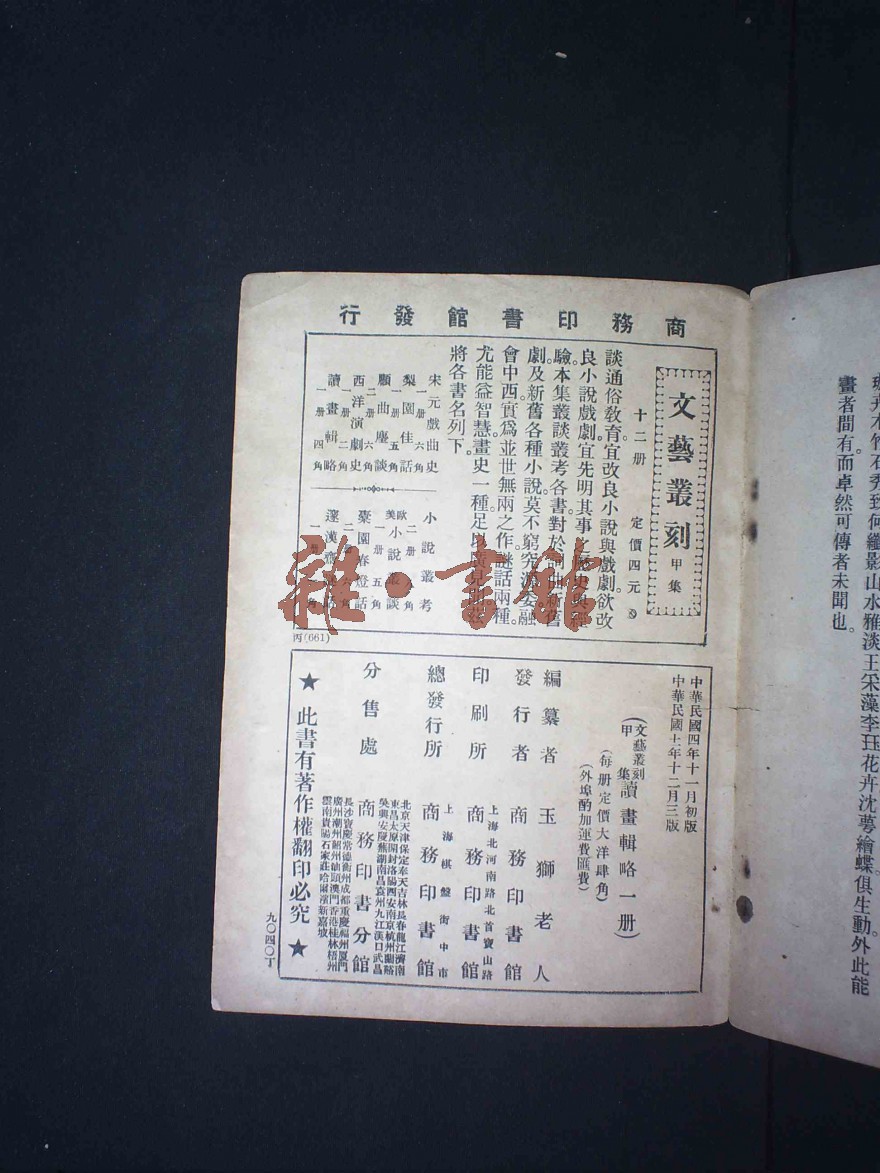 畫者間有而卓然可傳者未聞也。
商務印書館發行
文藝叢刻甲集
十二册 定價四元
談通俗敎育宜改良小說與戲劇欲改
良小說戲劇宜先明其事
驗本集叢談叢考各書對於
劇及新舊各種小說莫不窮究
會中西實爲並世無兩之作謎話兩種
尤能益智慧畫史一種足以廣見
將各書名列下
宋元戲曲史 一册六角
梨園佳話 一册五角
顧曲麈談 二册六角
西洋演劇史 一册二角
讀畫輯略 一册四角
小說叢考 二册 角
歐美小說叢談 一册五角
槖園春燈話 二册六角
邃漢齋
丙(661)
中華民國四年十一月初版
中華民國十一年十二月三版
(文藝叢刻甲集)讀畫輯略一册)
(每册定價大洋肆角)
(外埠酌加運費匯費)
編纂者 玉獅老人
發行者 商務印書館
上海北河南路北首寶山路
印刷所 商務印書館
上海棋盤街中市
總發行所 商務印書館
分售處 商務印書分館
北京天津保定奉天吉林長春龍江濟南
東昌太原開封洛陽西安南京杭州蘭谿
吳興安慶蕪湖南昌袁州九江漢口武昌
長沙寶慶常德衡州成都重慶福州厦門
廣州潮州韶州汕頭澳門香港桂林梧州
雲南貴陽石家莊哈爾濱新嘉坡
★此書有著作權翻印必究★
九〇四〇丁
雜·書館